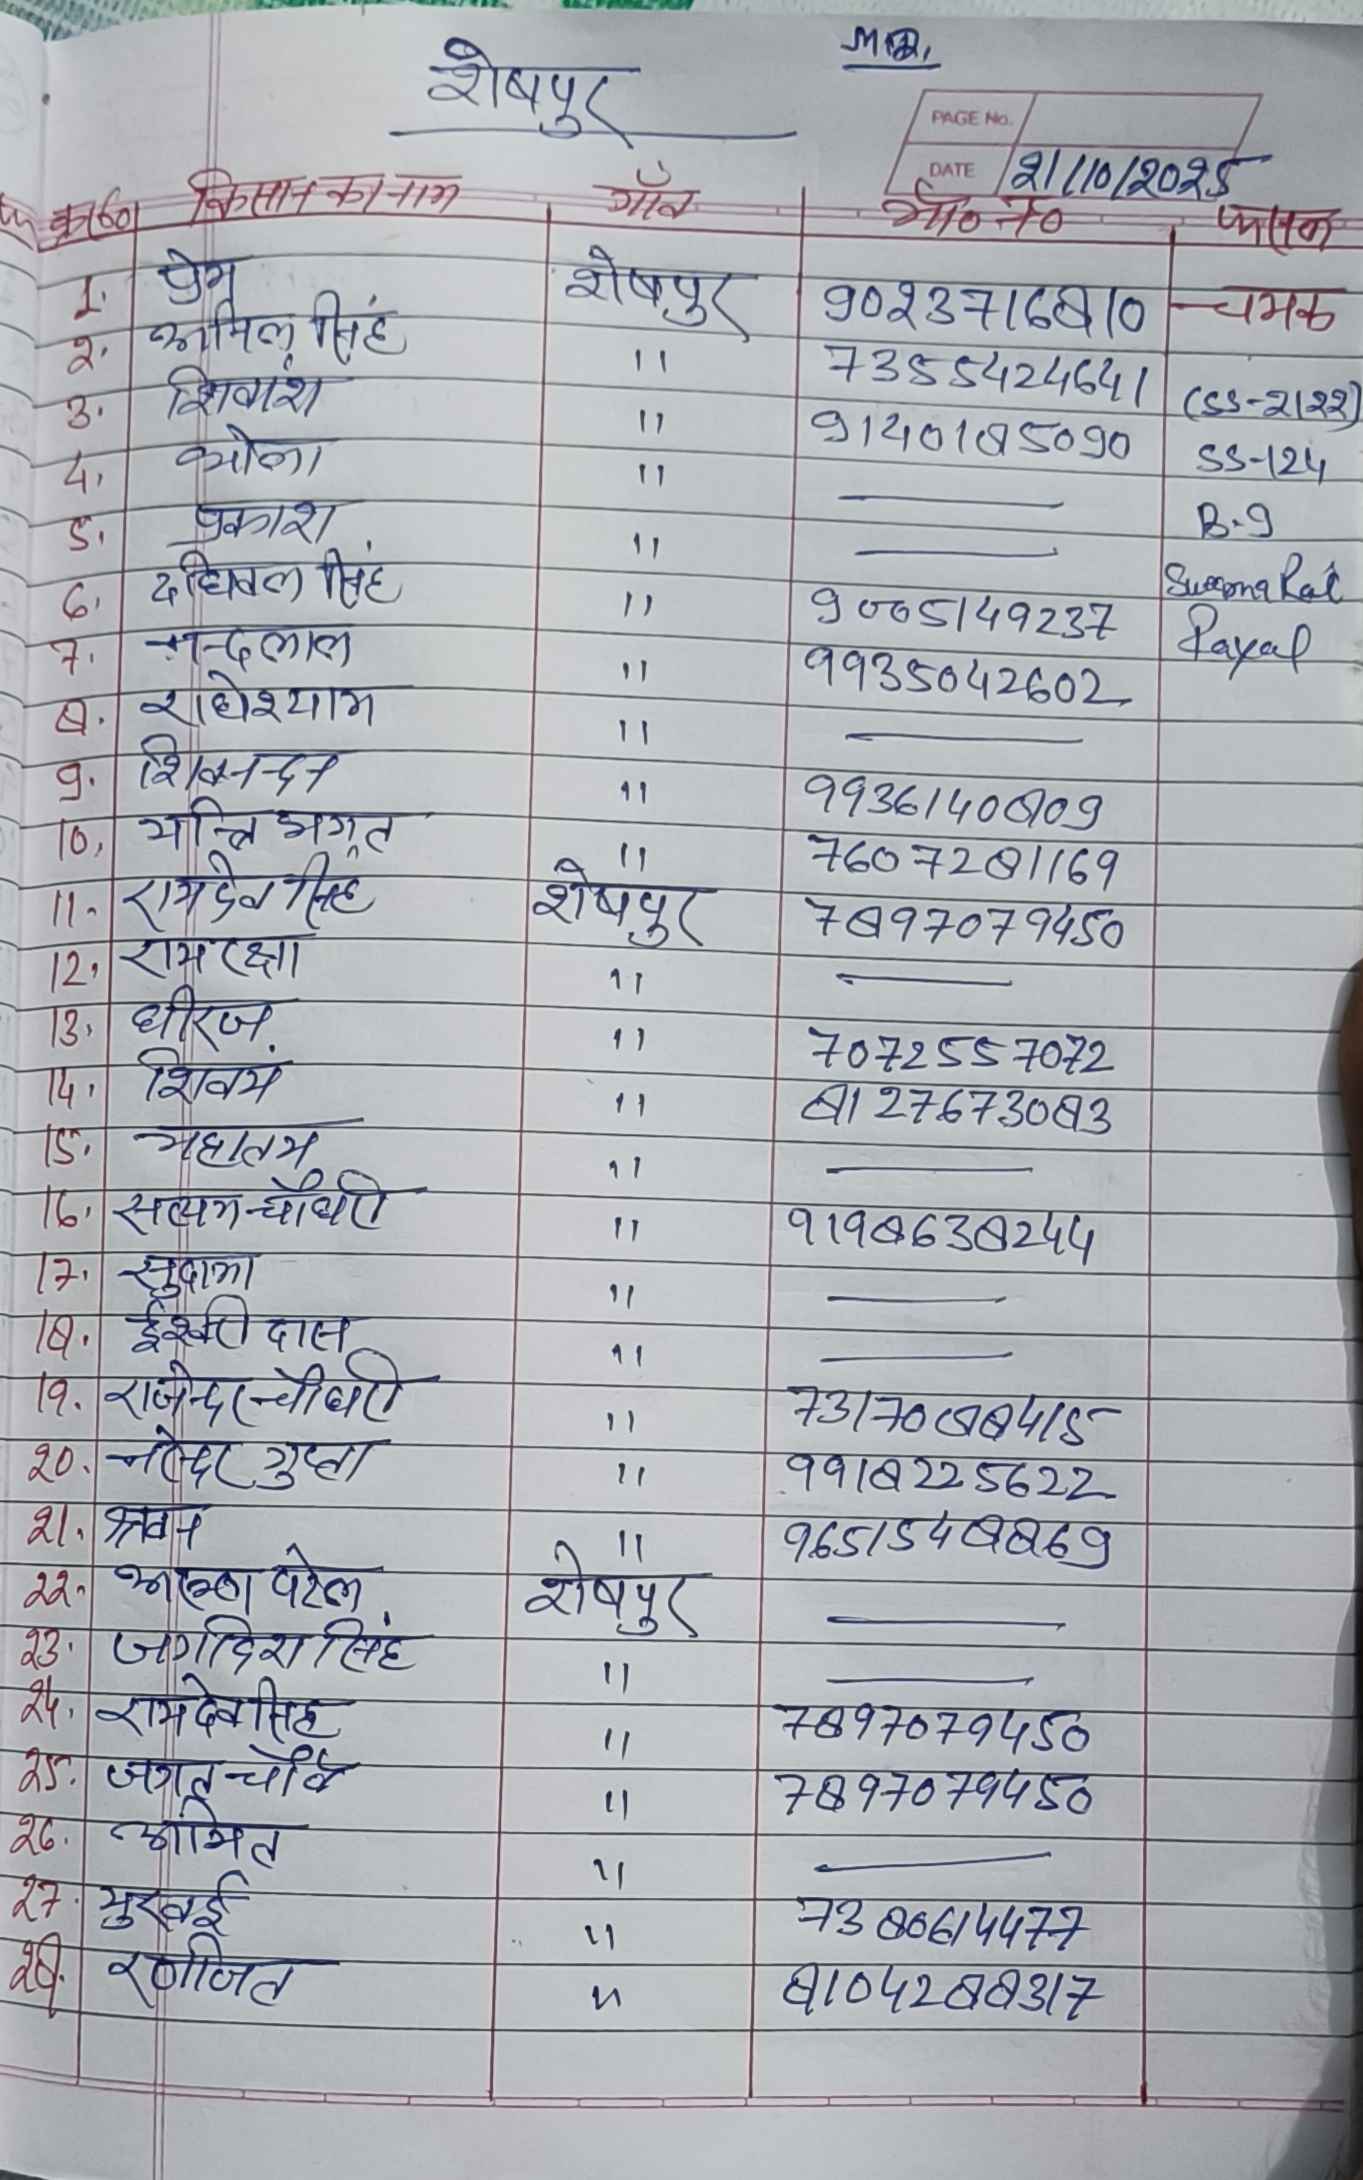 शेषपुर
PAGE No.
DATE 21/10/2025
क्र०सं० किसान का नाम गाँव मो० नं० फसल
1. प्रेम शेषपुर 9023716810 चमक
2. अनिल सिंह " 7355424641 (SS-2122)
3. शिवांश " 9140185090 SS-124
4. भोला " — B-9
5. प्रकाश " — Swarna
6. दधिबल सिंह " 9005149237 Payal
7. नन्दलाल " 9935042602
8. राधेश्याम " —
9. शिवनन्दन " 9936140809
10. " 7607281169
11. रामदेव सिंह शेषपुर 7897079450
12. राम रक्षा " —
13. धीरज " 7072557072
14. शिवम " 8127673083
15. महातम " —
16. सत्यम चौधरी " 9198638244
17. सुदामा " —
18. ईश्वरी दास " —
19. राजेन्द्र चौधरी " 7317088415
20. नरेन्द्र गुप्ता " 9918225622
21. श्रवन " 9651548869
22. पटेल शेषपुर —
23. जगदिश सिंह " —
24. रामदेव सिंह " 7897079450
25. जगत " 7897079450
26. अमित " —
27. मुरवई " 7380614477
28. रणजित " 8104288317